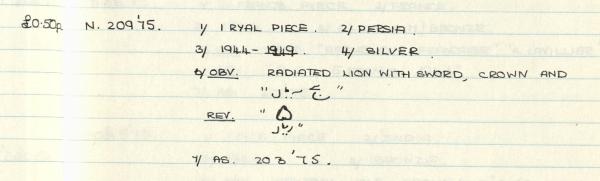 £0·50p N. 209'75. 1/ 1 RYAL PIECE. 2/ PERSIA.
3/ 1944-1949 4/ SILVER.
6/ OBV. RADIATED LION WITH SWORD, CROWN AND
REV. " ۵
ریال"
7/ AB. 203'75.